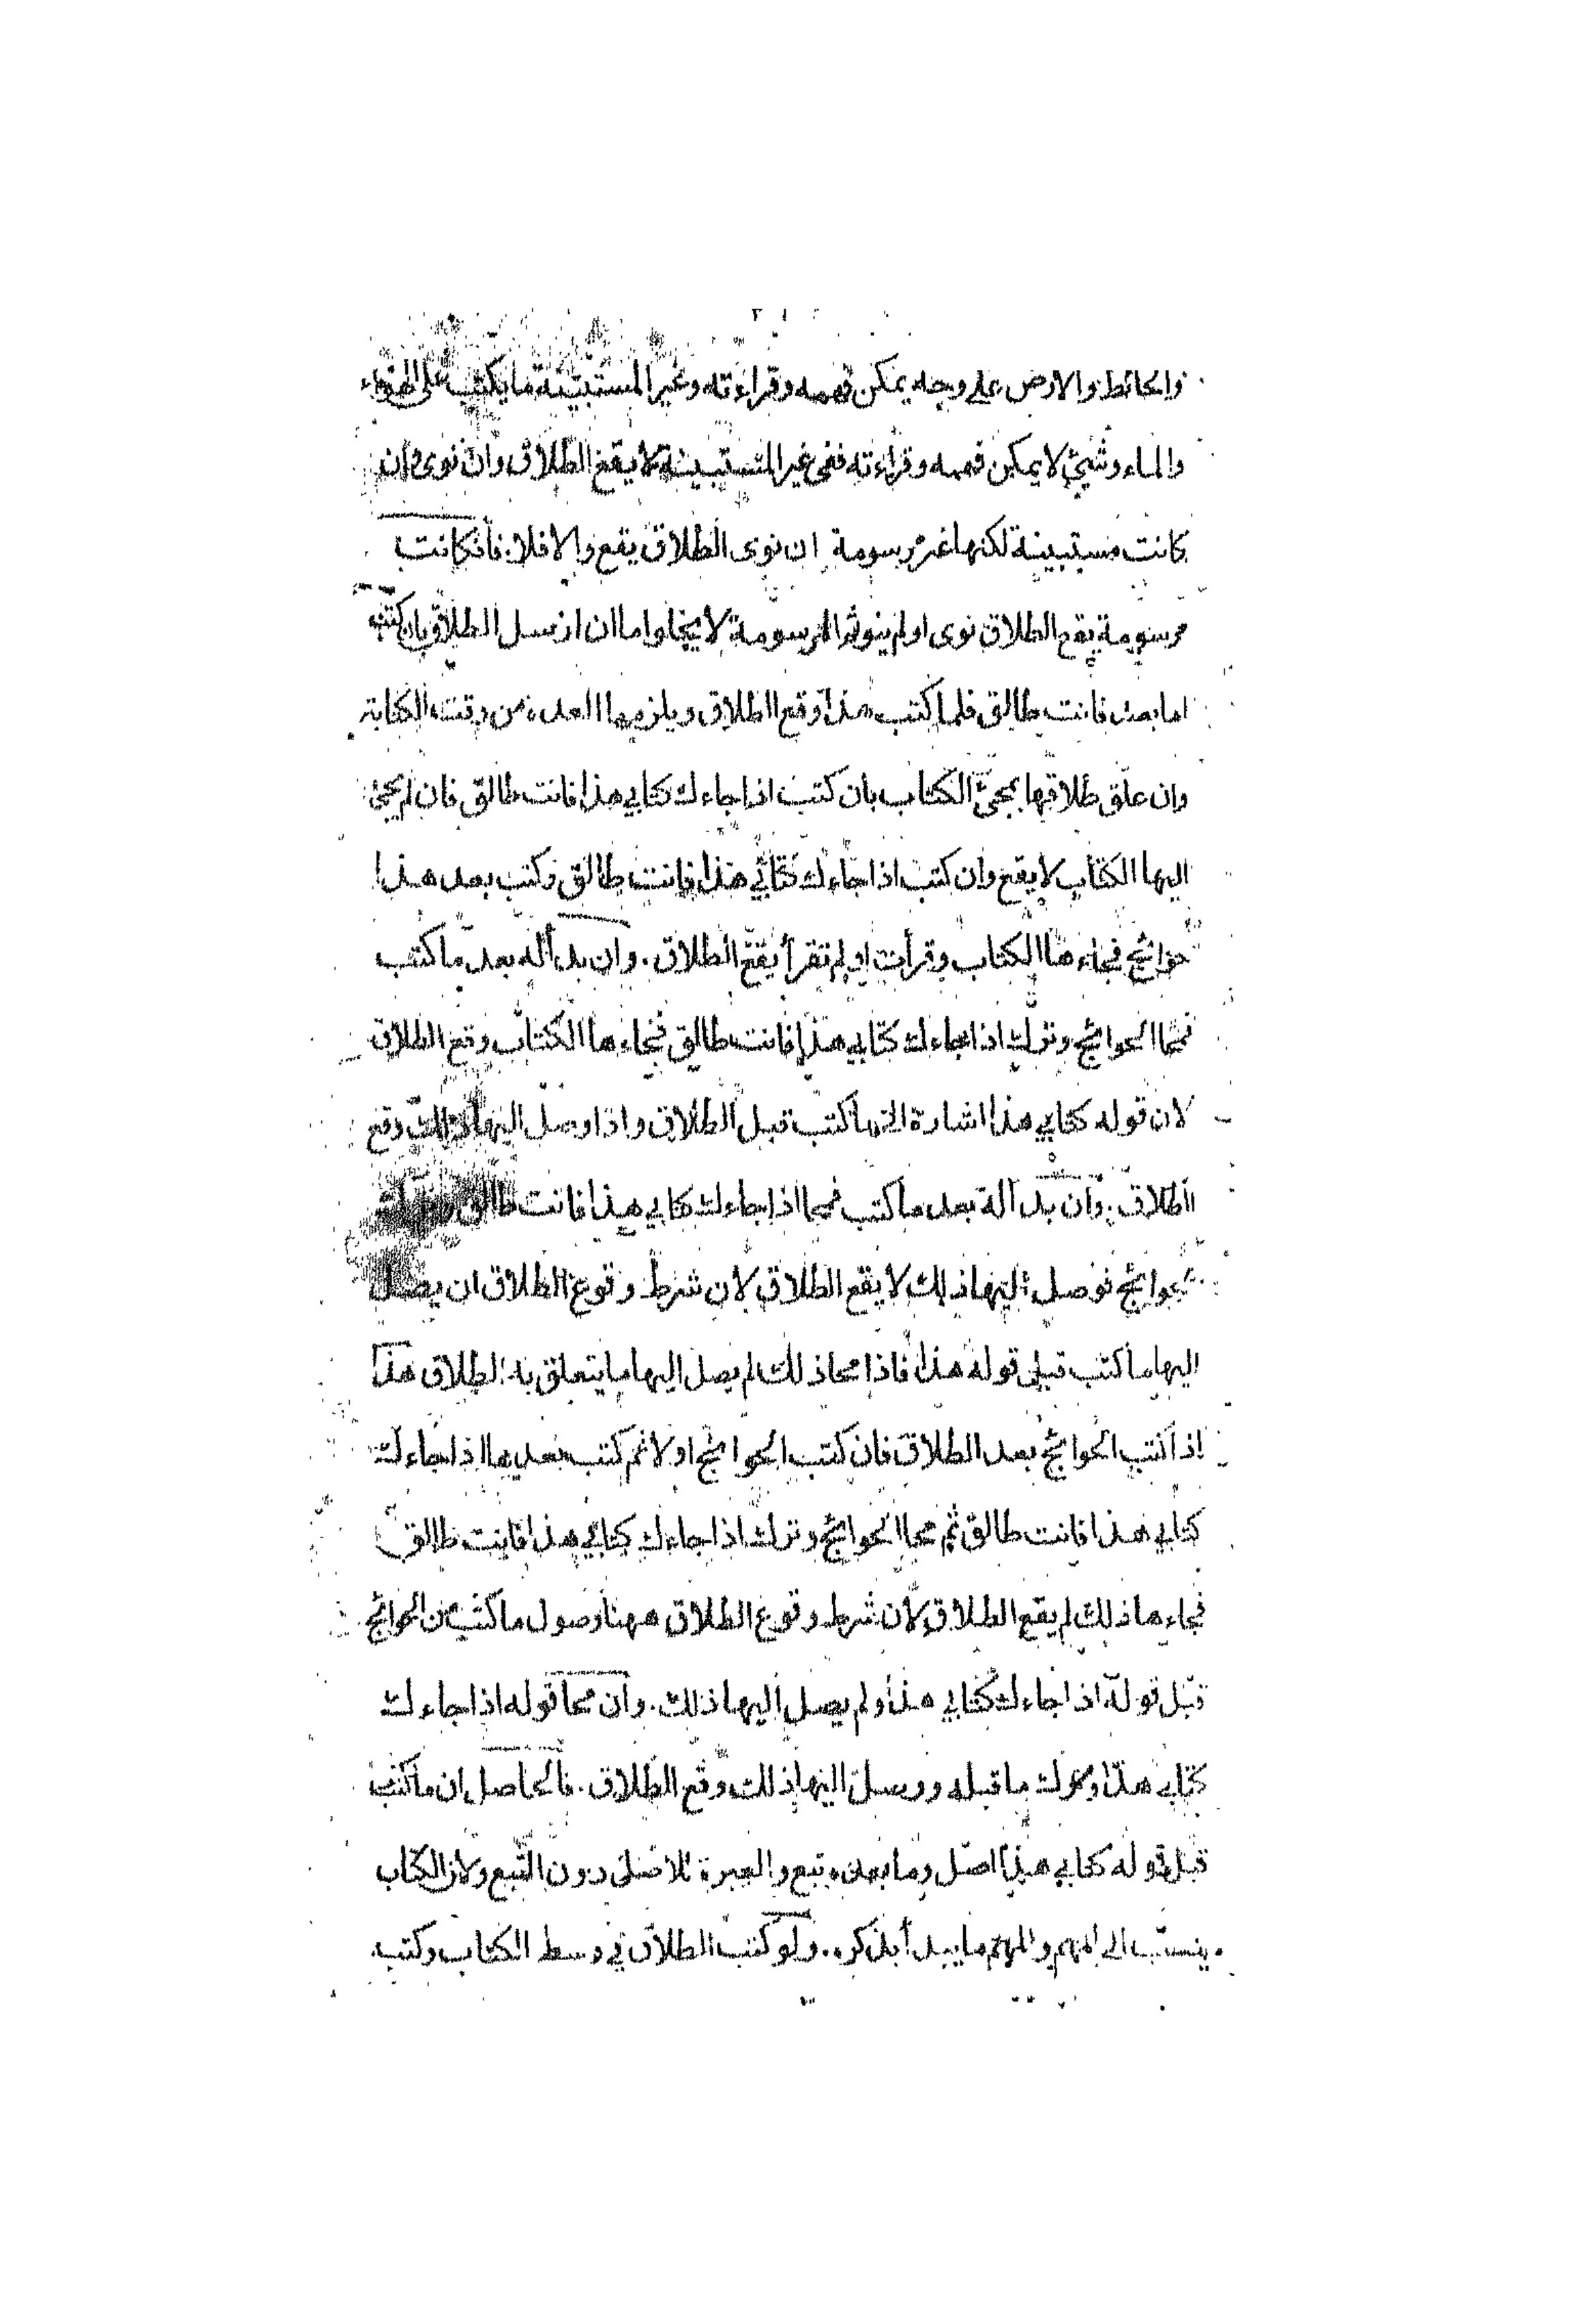 والحائط والارض على وجه يمكن فهمه وقراءته وغير المستبينة ما يكتب على الهواء
والماء وشيئ لا يمكن فهمه وقراءته ففى غير المستبينة لا يقع الطلاق وان نوى وان
كانت مستبينة لكنها غير مرسومة ان نوى الطلاق يقع والا فلا فان كانت
مرسومة يقع الطلاق نوى او لم ينو ثم المرسومة لا يخلوا اما ان ارسل الطلاق بان كتب
اما بعد فانت طالق فلما كتب هذا وقع الطلاق ويلزمها العدة من وقت الكتابة
وان علّق طلاقها بمجئ الكتاب بان كتب اذا جاءك كتابي هذا فانت طالق فان لم يجئ
اليها الكتاب لا يقع وان كتب اذا جاءك كتابي هذا فانت طالق وكتب بعد هذا
حوائج فجاءها الكتاب وقرأت او لم تقرأ يقع الطلاق . وان بدأ له بعد ما كتب
فمحا الحوائج وترك اذا جاءك كتابي هذا فانت طالق فجاءها الكتاب وقع الطلاق
لان قوله كتابي هذا اشارة الى ما كتب قبل الطلاق واذا وصل اليها ذلك وقع
الطلاق . وان بدأ له بعد ما كتب فمحا اذا جاءك كتابي هذا فانت طالق وترك
الحوائج فوصل اليها ذلك لا يقع الطلاق لان شرط وقوع الطلاق ان يصل
اليها ما كتب قبل قوله هذا فاذا محا ذلك لم يصل اليها ما يتعلق به الطلاق هذا
اذا كتب الحوائج بعد الطلاق فان كتب الحوائج اولا ثم كتب بعدها اذا جاءك
كتابي هذا فانت طالق ثم محا الحوائج وترك اذا جاءك كتابي هذا فانت طالق
فجاءها ذلك لم يقع الطلاق لان شرط وقوع الطلاق ههنا وصول ما كتب من الحوائج
قبل قوله اذا جاءك كتابي هذا ولم يصل اليها ذلك . وان محا قوله اذا جاءك
كتابي هذا وترك ما قبله ووصل اليها ذلك وقع الطلاق . فالحاصل ان ما كتب
قبل قوله كتابي هذا اصل وما بعده تبع والعبرة للاصل دون التبع ولان الكتاب
ينسب الى المهم والمهم ما يبدأ بذكره . ولو كتب الطلاق في وسط الكتاب وكتب